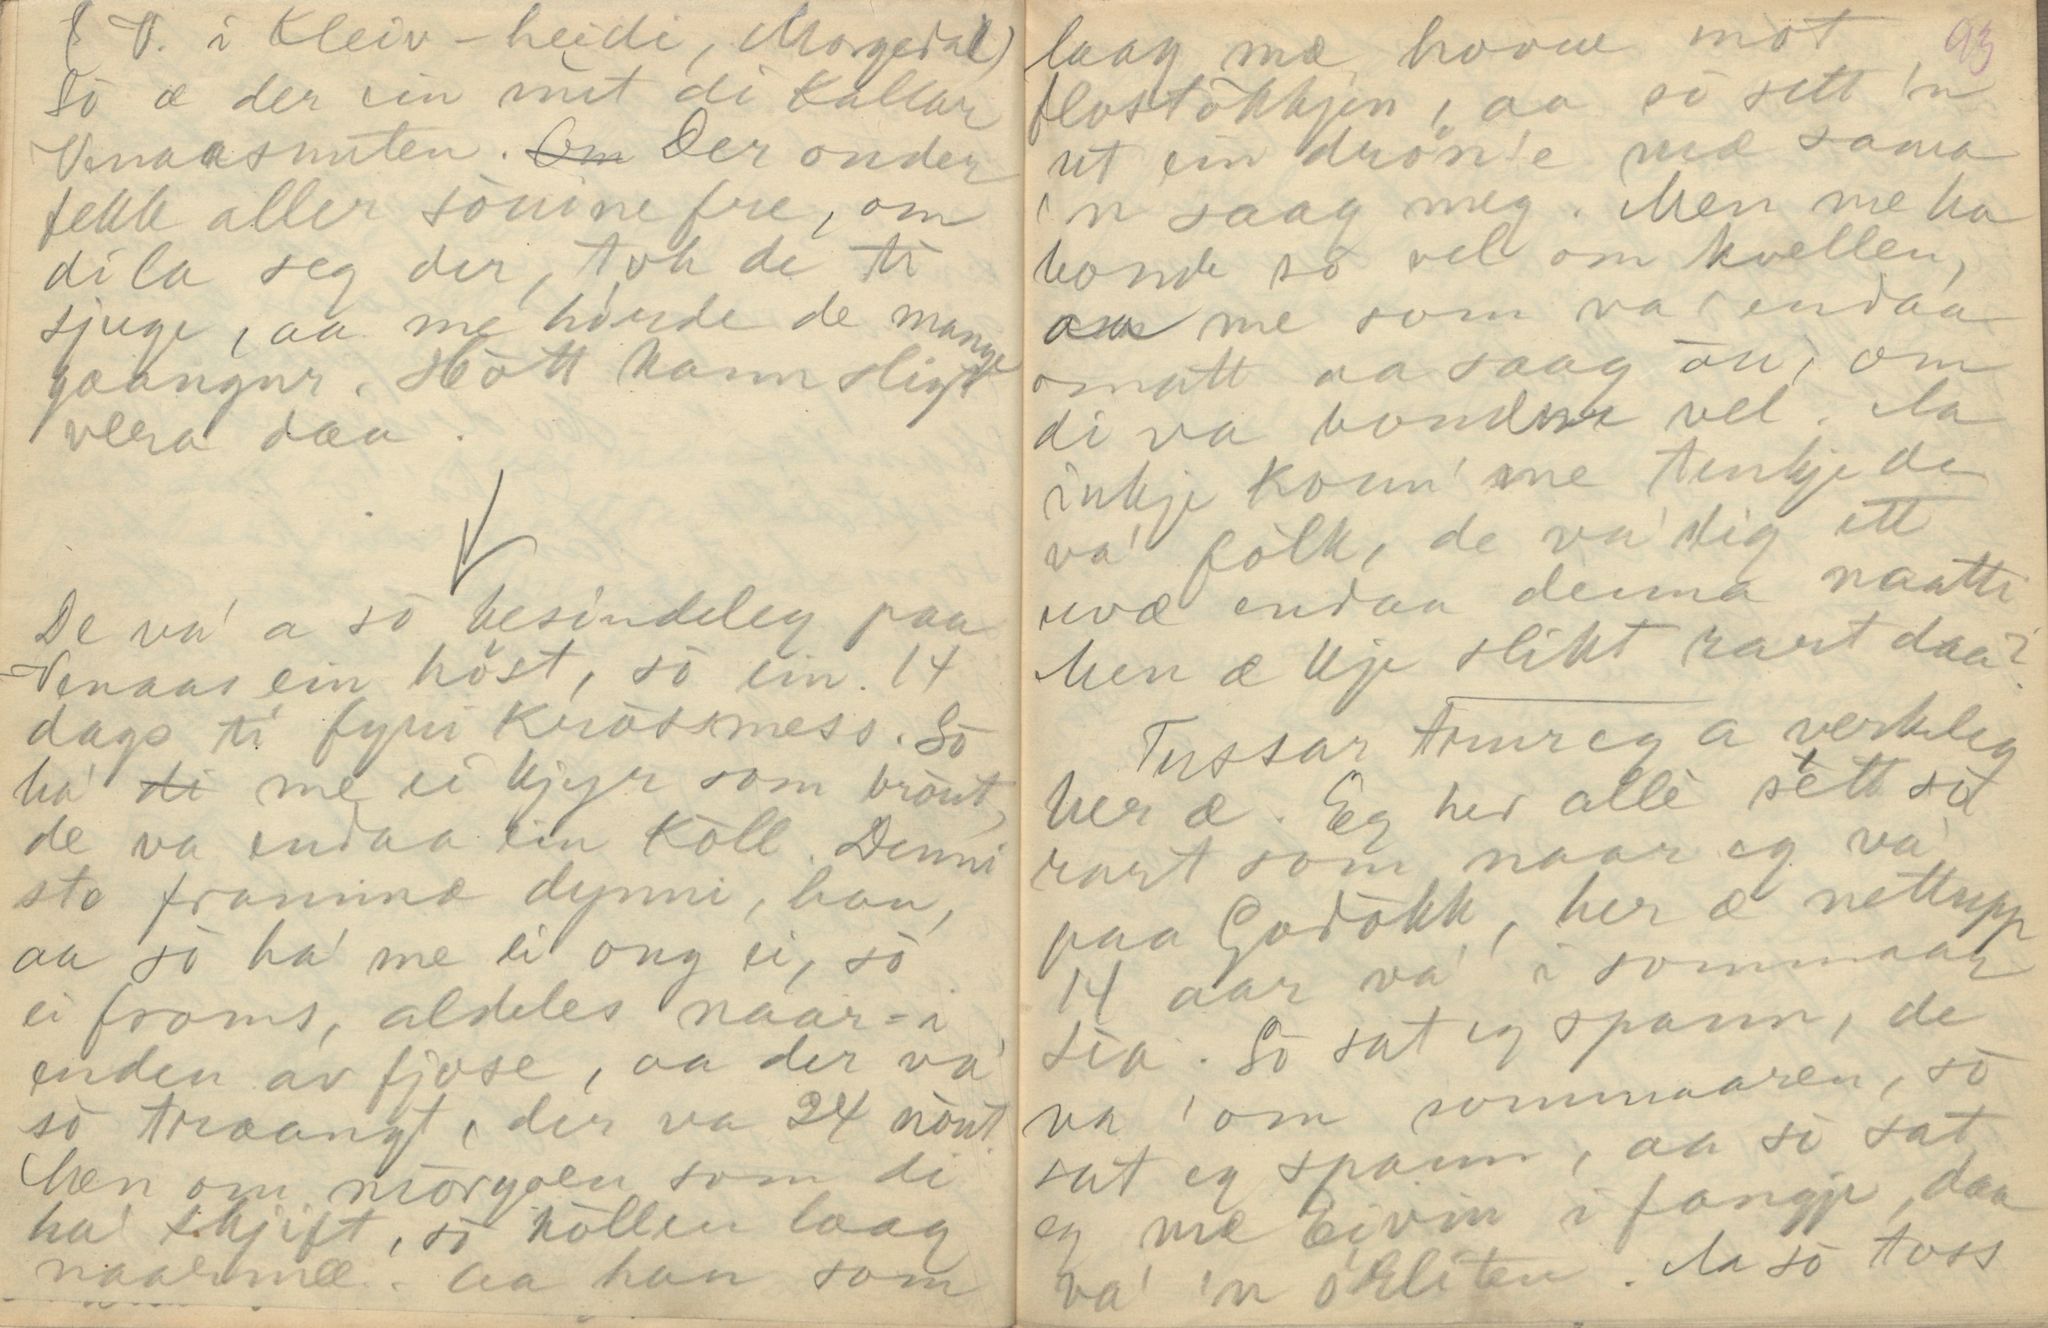 ( V. i Kleiv-heidi, Morgedal)
Sò æ der ein nut di kallar
Venaasnuten. Om Der onder
fekk aller sòuine fre, om
di la seg der, tok de ti
sjuge, aa me hòrde de mange
gaangur. Hòtt kann sligt
vera daa.
De va' a sò besindeleg paa
Venaas ein höst, sò ein 14
dags ti fyri Kròssmess. Sò
ha' di me ei kjyr som bròut,
de va endaa ein Kòll. Denni
sto frammæ dynni, han,
aa sò ha' me ei ong ei, sò
ei froms, aldeles naar-i
enden av fjose, aa der va'
sò traangt, der va 24 nòut.
Men om mòrgoen som di
ha' skjift, sò kòllen laag
naarmæ. Aa han som
93
laag mæ hovue mot
flostòkkjen, aa sò sett 'n
ut ein dròn'e mæ sama
'n saag meg. Men me ha
bonde sò vel om kvellen,
aa me som va' endaa
omatt aa saag òu, om
di va bondne vel. Aa
inkje koun' me tenkje de
va' fòlk, de va' dig ett
uvæ endaa denna naatti
Men æ kje slikt rart daa?
Tussar trur eg a verkeleg
her æ. Eg her allè sètt sò
rart som naar eg va'
paa Godòkk, her æ nettupp
14 aar va' i sommaar
sia. Sò sat eg spann, de
va' om sommaaren, sò
sat eg spann, aa sò sat
eg mæ Eivin i fangje, daa
va' 'n òkliten. Aa sò toss